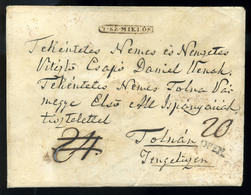 T·SZ·MIKLÓS
Tekéntetes Nemes és Nemzetes
Vitézlő Csapó Dániel Urnak,
Tekéntetes Nemes Tolna Vár-
megye Első Al Ispányának
tisztelettel
24. Tolnán 20
Tengelitzen